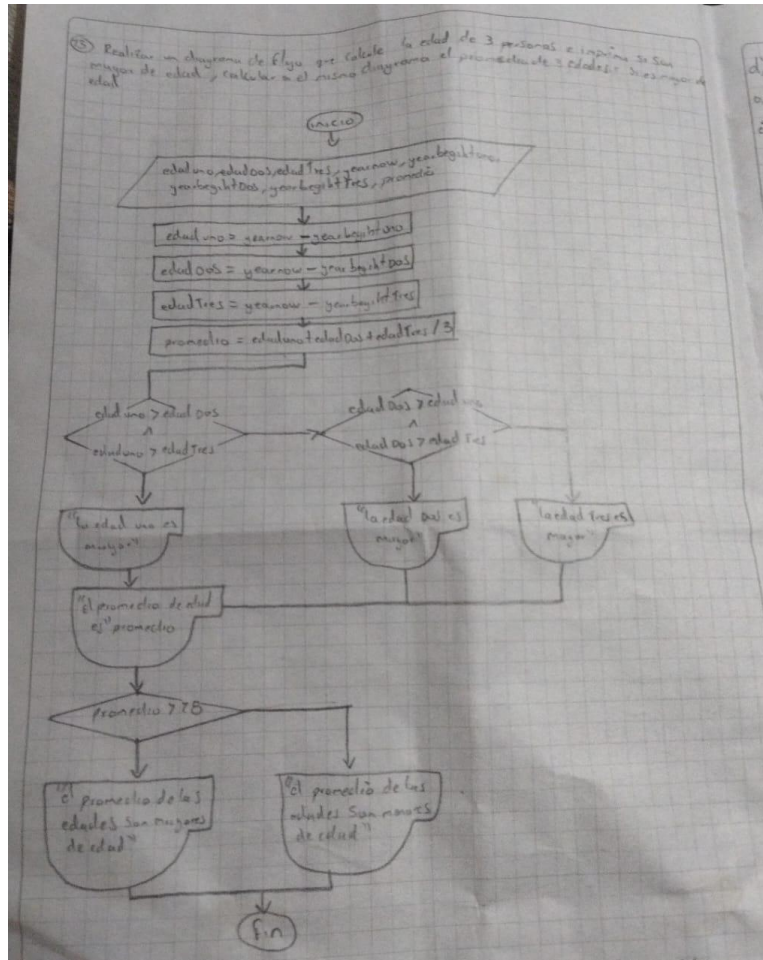 25) Realizar un diagrama de flujo que calcule la edad de 3 personas e imprima si son
mayor de edad, calcular en el mismo diagrama el promedio de 3 edades si es mayor de
edad
inicio
edad uno, edad Dos, edad Tres, yearnow, yearbegihtuno,
yearbegihtDos, yearbegihtTres, promedio
edad uno = yearnow - yearbegihtuno
edad Dos = yearnow - yearbegihtDos
edad Tres = yearnow - yearbegihtTres
promedio = edaduno + edad Dos + edad Tres / 3
edad uno > edad Dos
^
edaduno > edad Tres
edad Dos > edad uno
^
edad Dos > edad Tres
"la edad uno es
mayor"
"la edad Dos es
mayor"
"la edad Tres es
mayor"
"El promedio de edad
es" promedio
promedio >
"El promedio de las
edades son mayores
de edad"
"El promedio de las
edades son menores
de edad"
fin